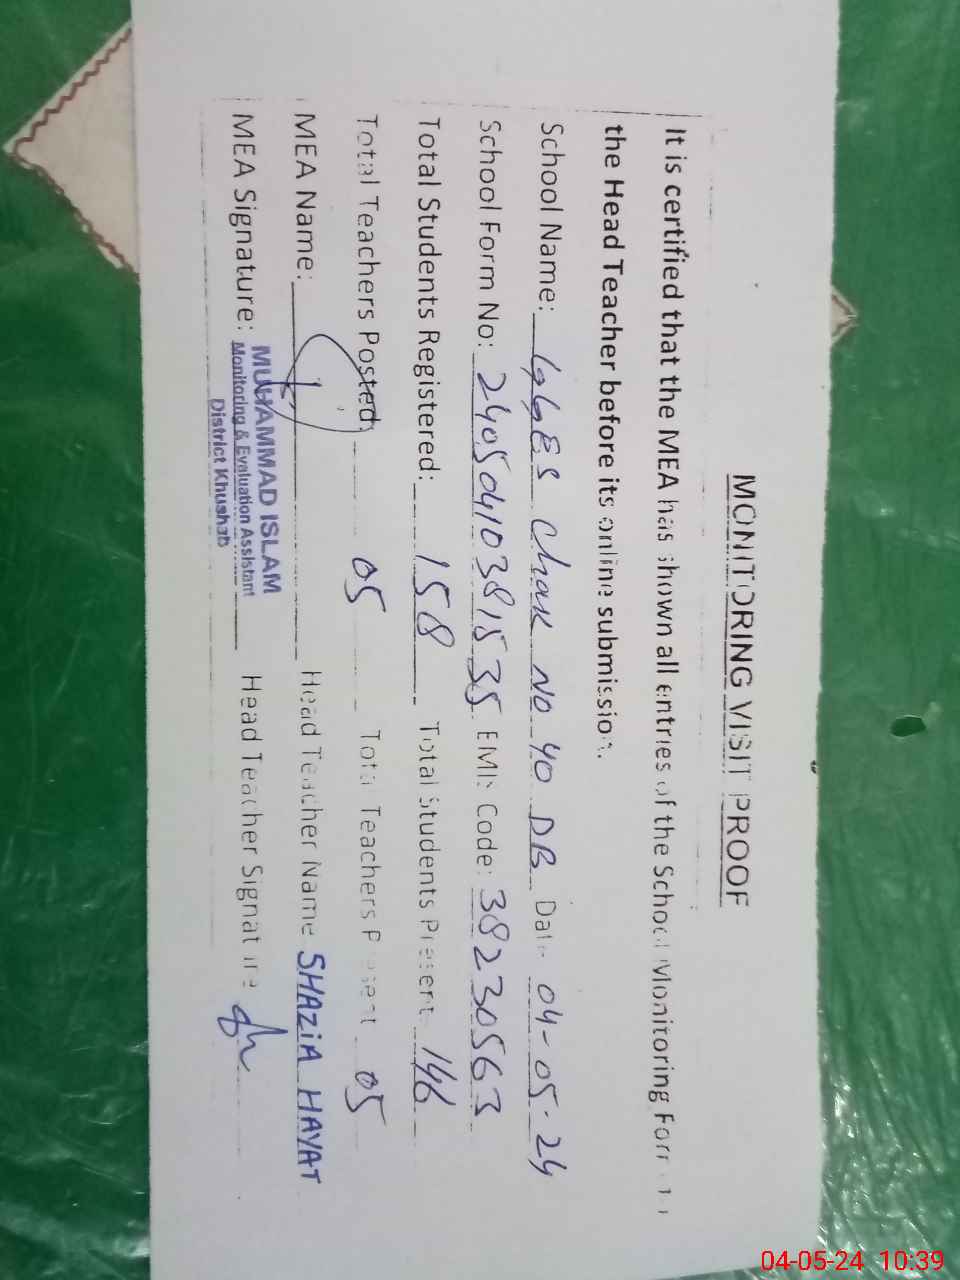 MONITORING VISIT PROOF
It is certified that the MEA has shown all entries of the School Monitoring Form to
the Head Teacher before its online submission.
School Name: GGES Chak No 40 DB Date 04-05-24
School Form No: 24050410381535 EMIS Code: 38230563
Total Students Registered: 158 Total Students Present 146
Total Teachers Posted: 05 Total Teachers Present 05
MEA Name: Head Teacher Name SHAZiA HAYAT
MEA Signature: MUHAMMAD ISLAM Head Teacher Signature
Monitoring & Evaluation Assistant
District Khushab
04-05-24 10:39